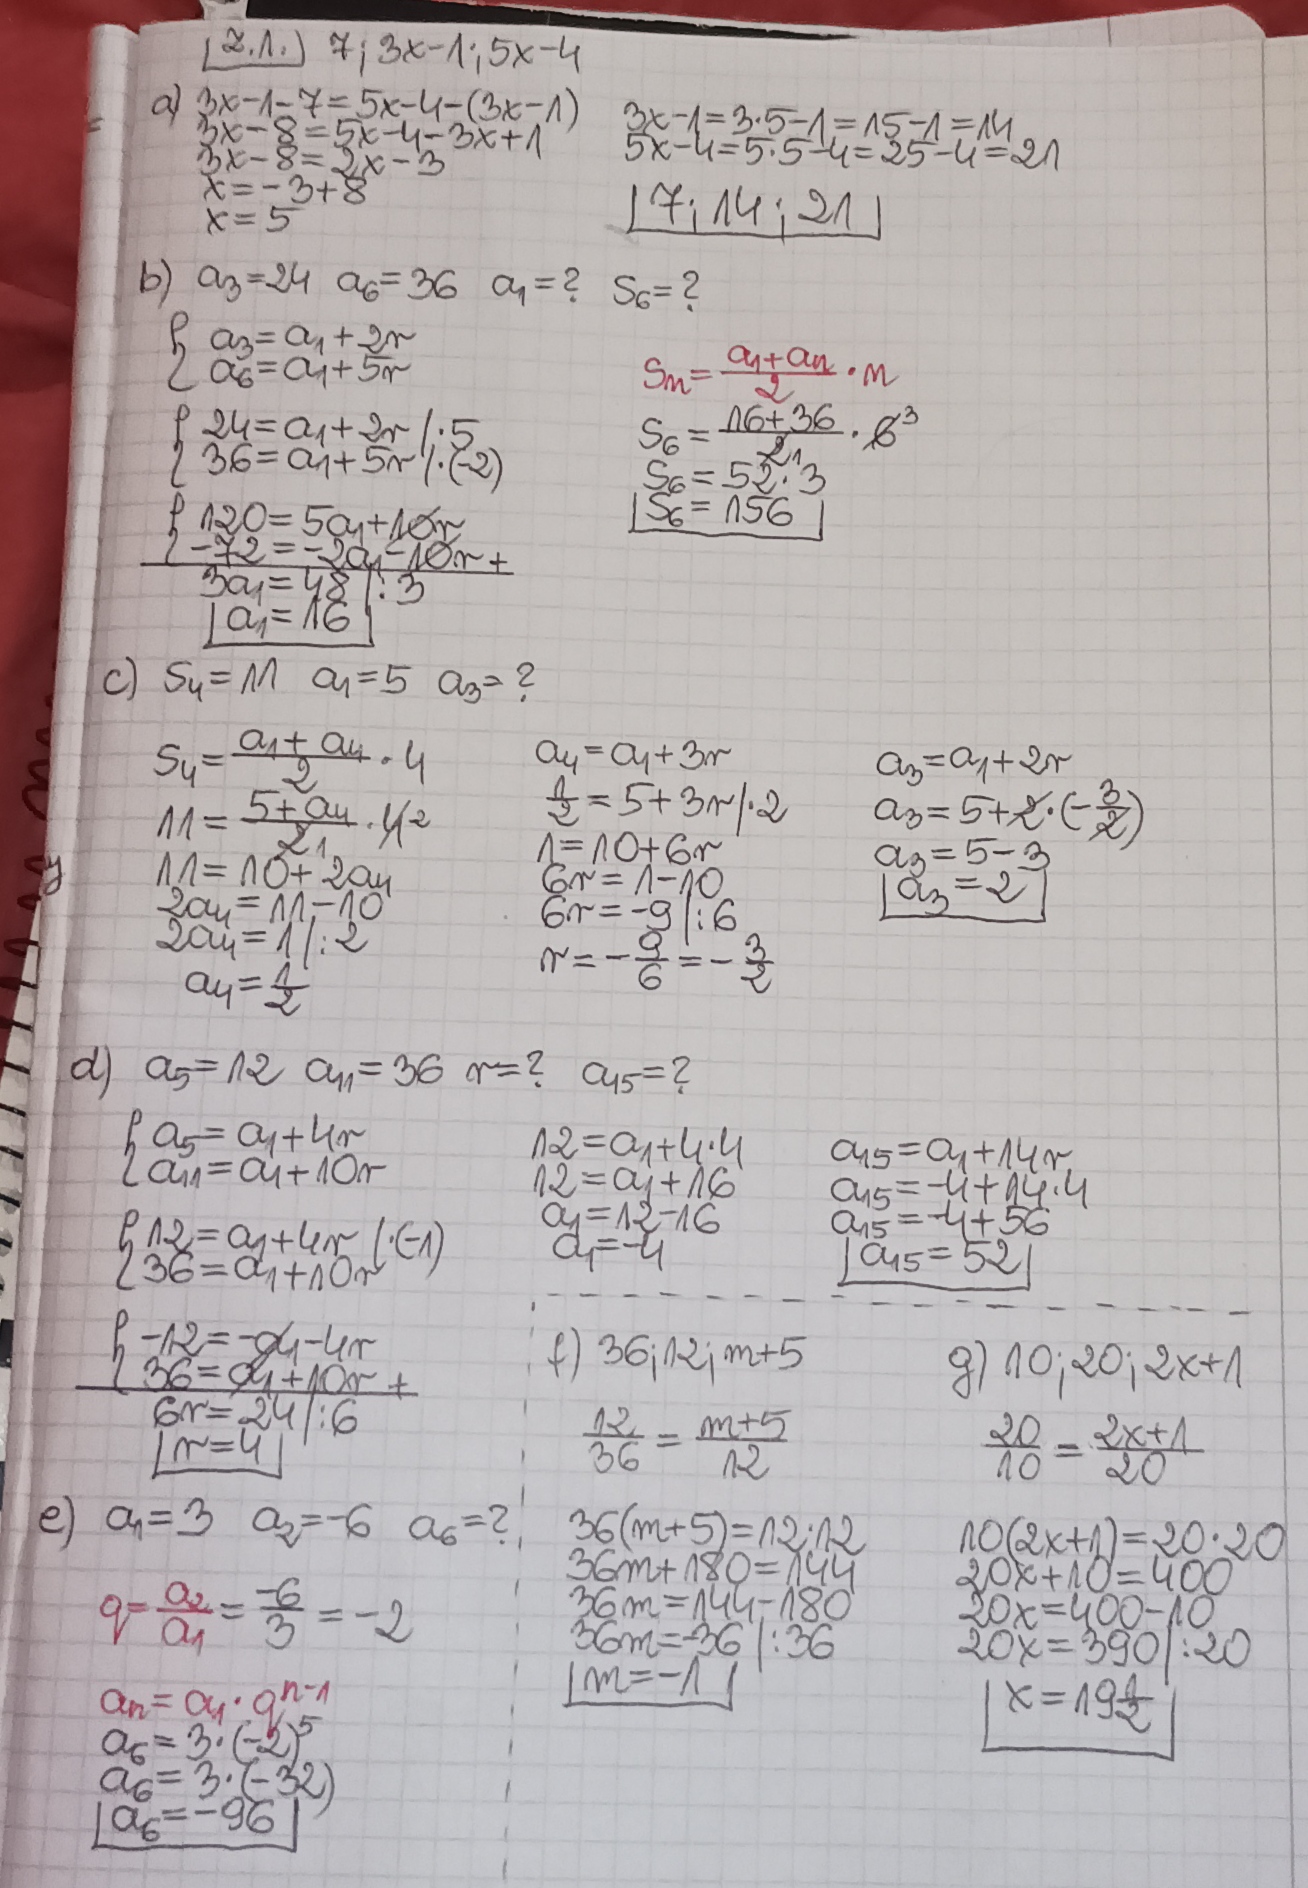 Z.1. 7; 3x-1; 5x-4
a) 3x-1-7=5x-4-(3x-1)
3x-8=5x-4-3x+1
3x-8=2x-3
x=-3+8
x=5
3x-1=3·5-1=15-1=14
5x-4=5·5-4=25-4=21
7; 14; 21
b) a₃=24 a₆=36 a₁=? S₆=?
{ a₃=a₁+2r
{ a₆=a₁+5r
{ 24=a₁+2r /·5
{ 36=a₁+5r /·(-2)
{ 120=5a₁+10r
{ -72=-2a₁-10r +
3a₁=48 /:3
a₁=16
Sn=(a₁+an)/2·n
S₆=(16+36)/2₁·6³
S₆=52·3
S₆=156
c) S₄=11 a₁=5 a₃=?
S₄=(a₁+a₄)/2·4
11=(5+a₄)/2₁·4²
11=10+2a₄
2a₄=11-10
2a₄=1 /:2
a₄=1/2
a₄=a₁+3r
1/2=5+3r /·2
1=10+6r
6r=1-10
6r=-9 /:6
r=-9/6=-3/2
a₃=a₁+2r
a₃=5+2·(-3/2)
a₃=5-3
a₃=2
d) a₅=12 a₁₁=36 r=? a₁₅=?
{ a₅=a₁+4r
{ a₁₁=a₁+10r
{ 12=a₁+4r /·(-1)
{ 36=a₁+10r
{ -12=-a₁-4r
{ 36=a₁+10r +
6r=24 /:6
r=4
12=a₁+4·4
12=a₁+16
a₁=12-16
a₁=-4
a₁₅=a₁+14r
a₁₅=-4+14·4
a₁₅=-4+56
a₁₅=52
e) a₁=3 a₂=-6 a₆=?
q=a₂/a₁=-6/3=-2
an=a₁·qⁿ⁻¹
a₆=3·(-2)⁵
a₆=3·(-32)
a₆=-96
f) 36; 12; m+5
12/36=(m+5)/12
36(m+5)=12·12
36m+180=144
36m=144-180
36m=-36 /:36
m=-1
g) 10; 20; 2x+1
20/10=(2x+1)/20
10(2x+1)=20·20
20x+10=400
20x=400-10
20x=390 /:20
x=19 1/2